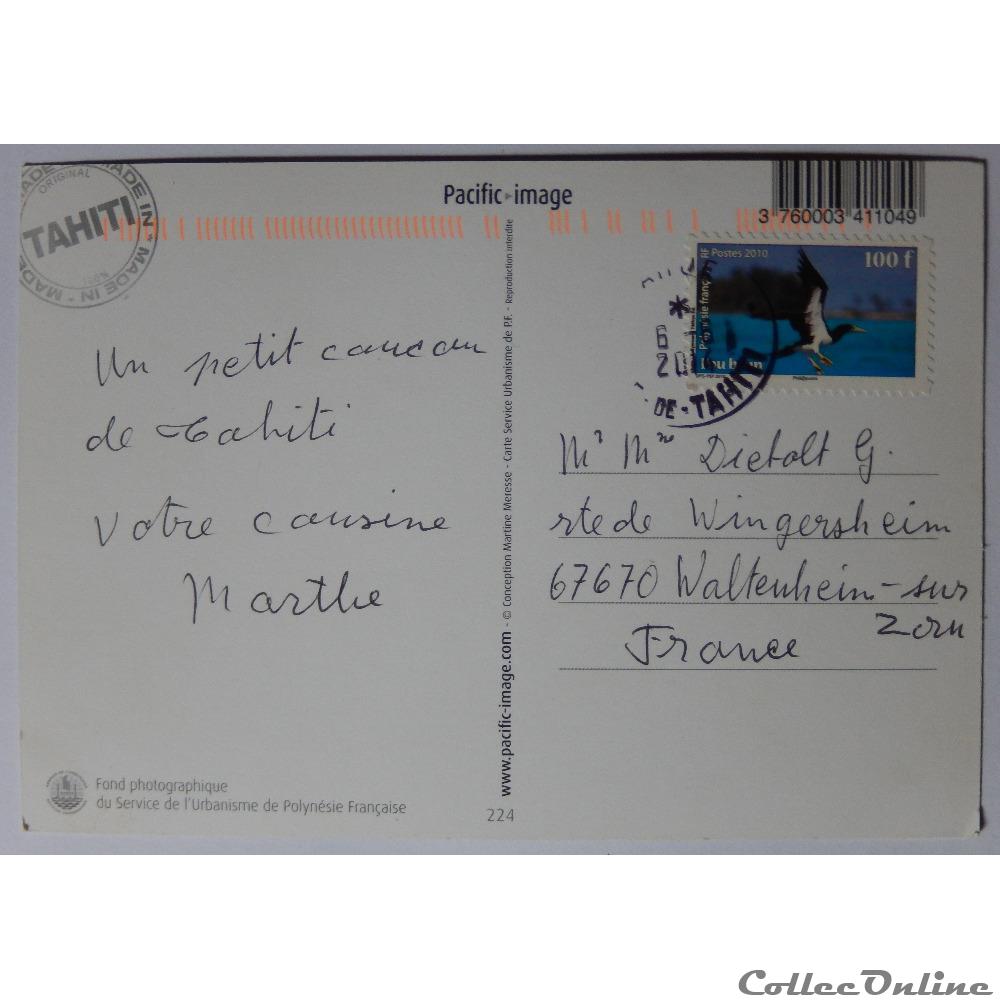 MADE IN * MADE IN * MADE IN
ORIGINAL
TAHITI
Pacific image
3 760003 411049
RF Postes 2010
100 f
Polynésie française
Fou brun
*
6
20
DE - TAHITI
Un petit coucou
de Tahiti
Votre cousine
Marthe
Mr Mme Dietolt G.
rte de Wingersheim
67670 Waltenheim-sur
Zorn
France
www.pacific-image.com - © Conception Martine Meresse - Carte Service Urbanisme de P.F. - Reproduction interdite
Fond photographique
du Service de l'Urbanisme de Polynésie Française
224
CollecOnline